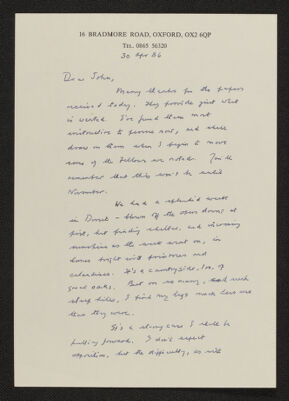 16 BRADMORE ROAD, OXFORD, OX2 6QP
TEL. 0865 56320
30 Apr 86
Dear John,
Many thanks for the papers
received today. They provide just what
is wanted. I've found them most
instructive to peruse now, and shall
draw on them when I begin to move
some of the fellows we notable. You'll
remember that this won't be until
November.
We had a splendid week
in Dorset - blown off the open downs at
first, but finding shelter, and increasing
sunshine as the week went on, in
lanes bright with primroses and
celandines. It's a countryside, too, of
good oaks. But on so many, such
steep hills, I find my legs much less use
than they were.
It's a strong case I shall be
putting forward. I don't expect
opposition, but the difficulty, as with